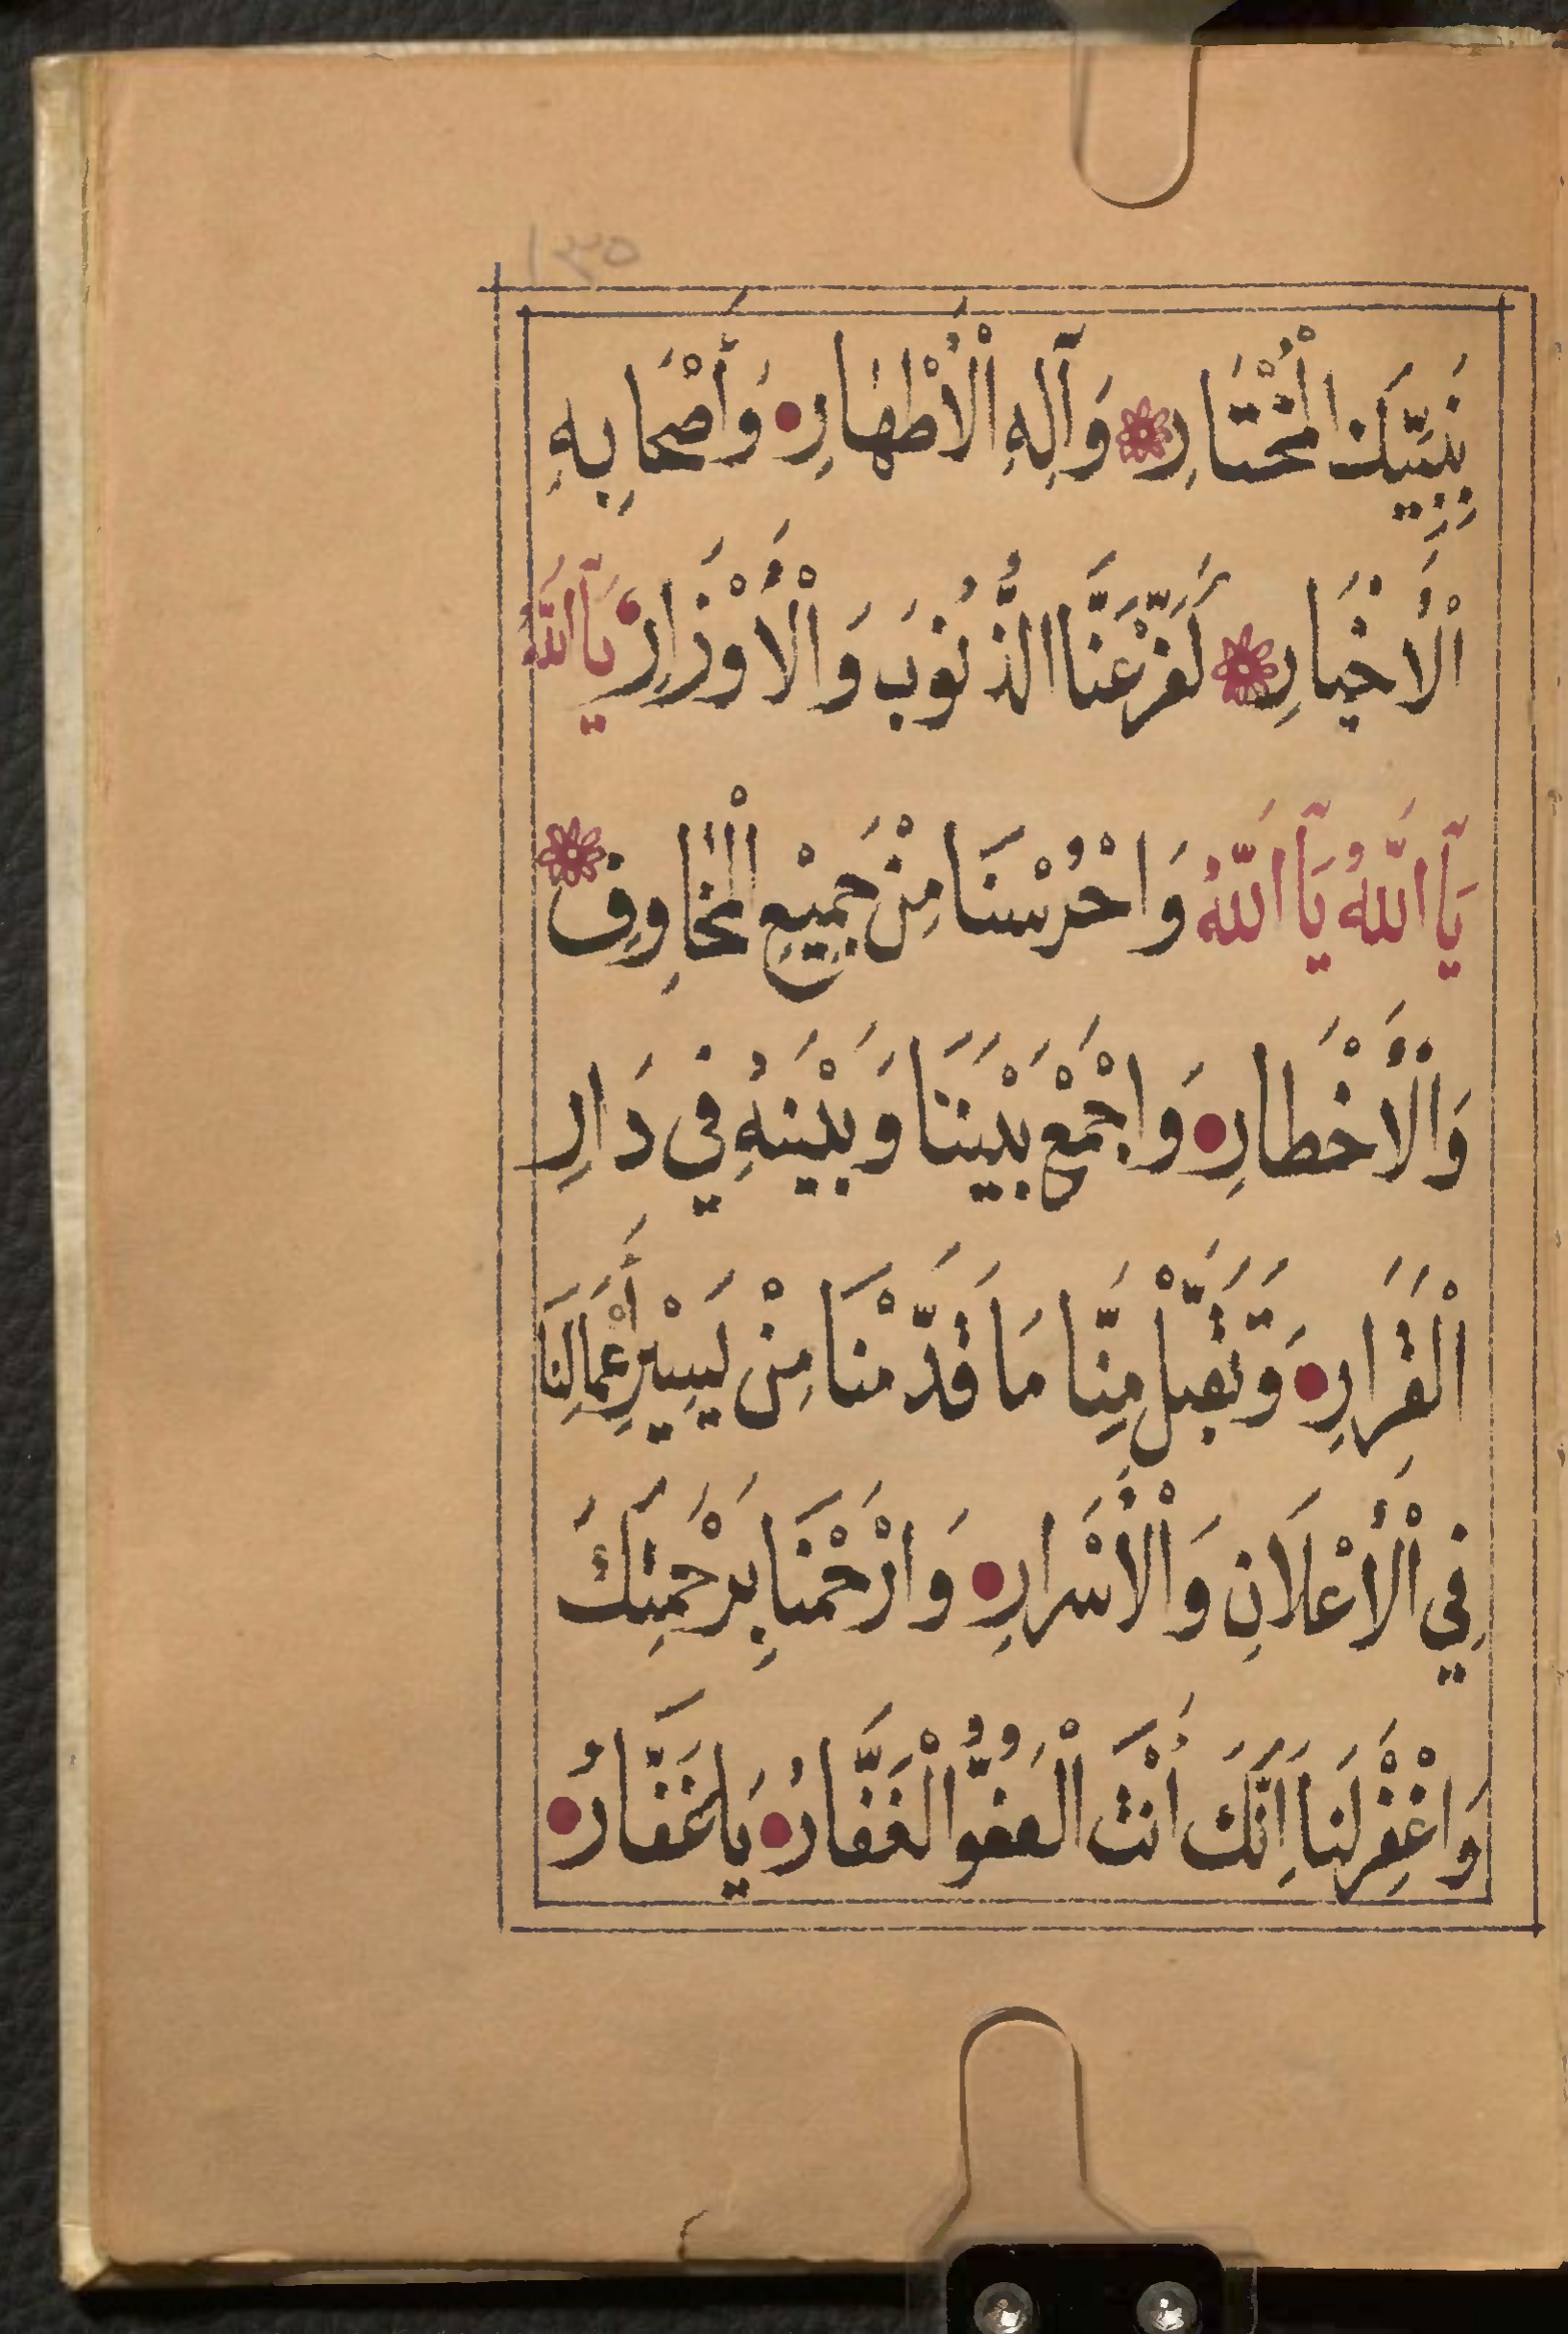 ١٣٥
بِنَبِيِّكَ الْمُخْتَارِ وَآلِهِ الْأَطْهَارِ وَأَصْحَابِهِ
الْأَخْيَارِ كَفِّرْ عَنَّا الذُّنُوْبَ وَالْأَوْزَارِ يَآ اَللّٰهُ
يَآ اَللّٰهُ يَآ اَللّٰهُ وَاحْرُسْنَا مِنْ جَمِيْعِ الْمَخَاوِفِ
وَالْأَخْطَارِ وَاجْمَعْ بَيْنَنَا وَبَيْنَهُ فِي دَارِ
الْقَرَارِ وَتَقَبَّلْ مِنَّا مَا قَدَّمْنَا مِنْ يَسِيْرِ أَعْمَالِنَا
فِي الْأَعْلَانِ وَالْأَسْرَارِ وَارْحَمْنَا بِرَحْمَتِكَ
وَاغْفِرْ لَنَا اِنَّكَ أَنْتَ الْعَفُوُّ الْغَفَّارُ يَا غَفَّارُ